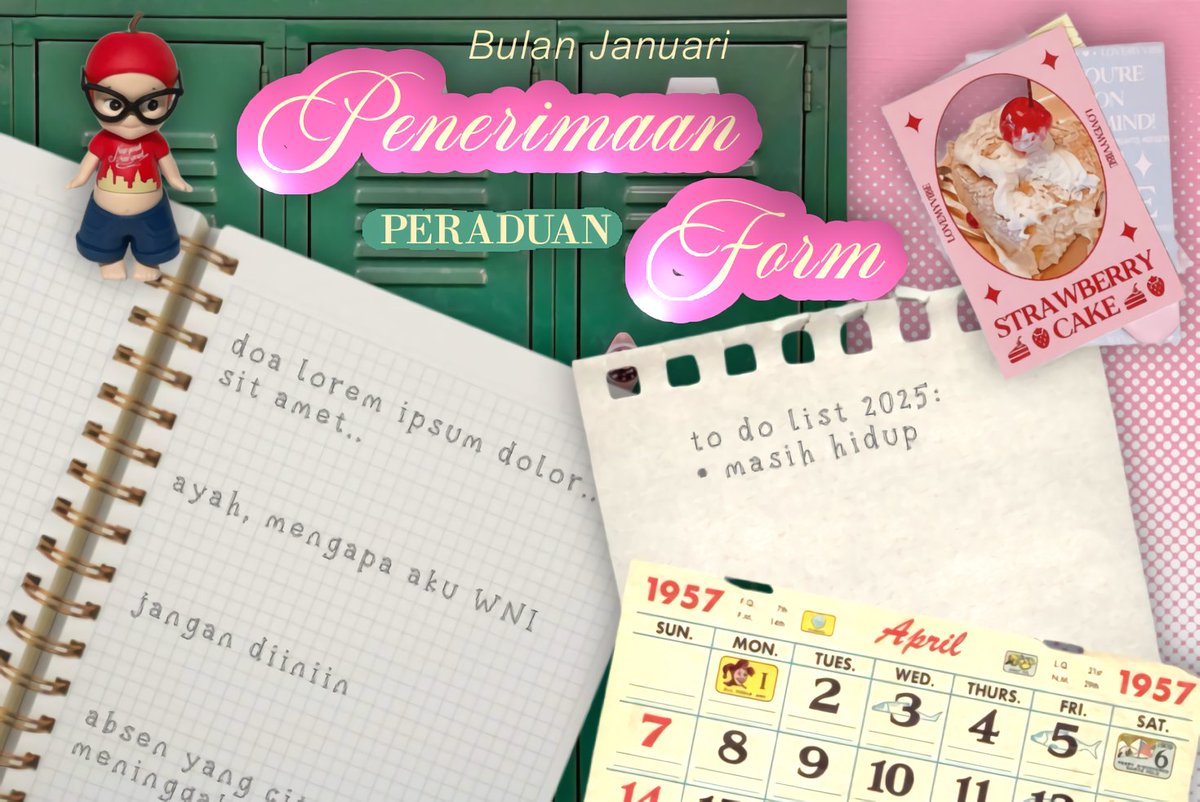 Bulan Januari
Penerimaan
PERADUAN
Form
YOU'RE
ON
MIND!
LOVEMYVIBE
LOVEMYVIBE
STRAWBERRY
CAKE
doa lorem ipsum dolor..
sit amet..
ayah, mengapa aku WNI
jangan diiniin
absen yang
to do list 2025:
• masih hidup
1957 April 1957
SUN. MON. TUES. WED. THURS. FRI. SAT.
1 2 3 4 5 6
7 8 9 10 11 12
14